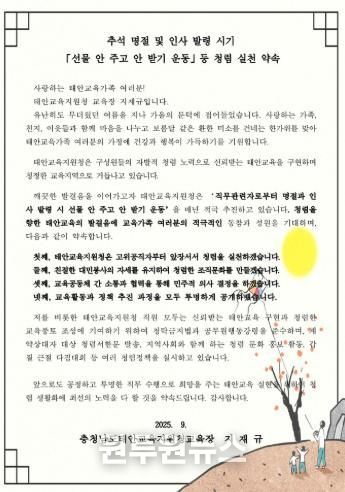 추석 명절 및 인사 발령 시기
「선물 안 주고 안 받기 운동」 등 청렴 실천 약속
사랑하는 태안교육가족 여러분!
태안교육지원청 교육장 지재규입니다.
유난히도 무더웠던 여름을 지나 가을의 문턱에 접어들었습니다. 사랑하는 가족,
친지, 이웃들과 함께 마음을 나누고 보름달 같은 환한 미소를 건네는 한가위를 맞아
태안교육가족 여러분의 가정에 건강과 행복이 가득하기를 기원합니다.
태안교육지원청은 구성원들의 자발적 청렴 노력으로 신뢰받는 태안교육을 구현하며
청정한 교육지역으로 거듭나고 있습니다.
깨끗한 발걸음을 이어가고자 태안교육지원청은 '직무관련자로부터 명절과 인
사 발령 시 선물 안 주고 안 받기 운동'을 매년 적극 추진하고 있습니다. 청렴을
향한 태안교육의 발걸음에 교육가족 여러분의 적극적인 동참과 성원을 기대하며,
다음과 같이 약속합니다.
첫째, 태안교육지원청은 고위공직자부터 앞장서서 청렴을 실천하겠습니다.
둘째, 친절한 대민봉사의 자세를 유지하여 청렴한 조직문화를 만들겠습니다.
셋째, 교육공동체 간 소통과 협력을 통해 민주적 의사 결정을 하겠습니다.
넷째, 교육활동과 정책 추진 과정을 모두 투명하게 공개하겠습니다.
저를 비롯한 태안교육지원청 직원 모두는 신뢰받는 태안교육 구현과 청렴한
교육풍토 조성에 기여하기 위하여 청탁금지법과 공무원행동강령을 준수하며, 계
약상대자 대상 청렴서한문 발송, 지역사회와 함께 하는 청렴 문화 홍보 활동, 갑
질 근절 다짐대회 등 여러 청렴정책을 실시하고 있습니다.
앞으로도 공정하고 투명한 직무 수행으로 희망을 주는 태안교육 실현을 위하여 청
렴 생활화에 최선의 노력을 다 할 것을 약속드립니다. 감사합니다.
2025. 9.
충청남도태안교육지원청교육장 지 재 규
원투원뉴스